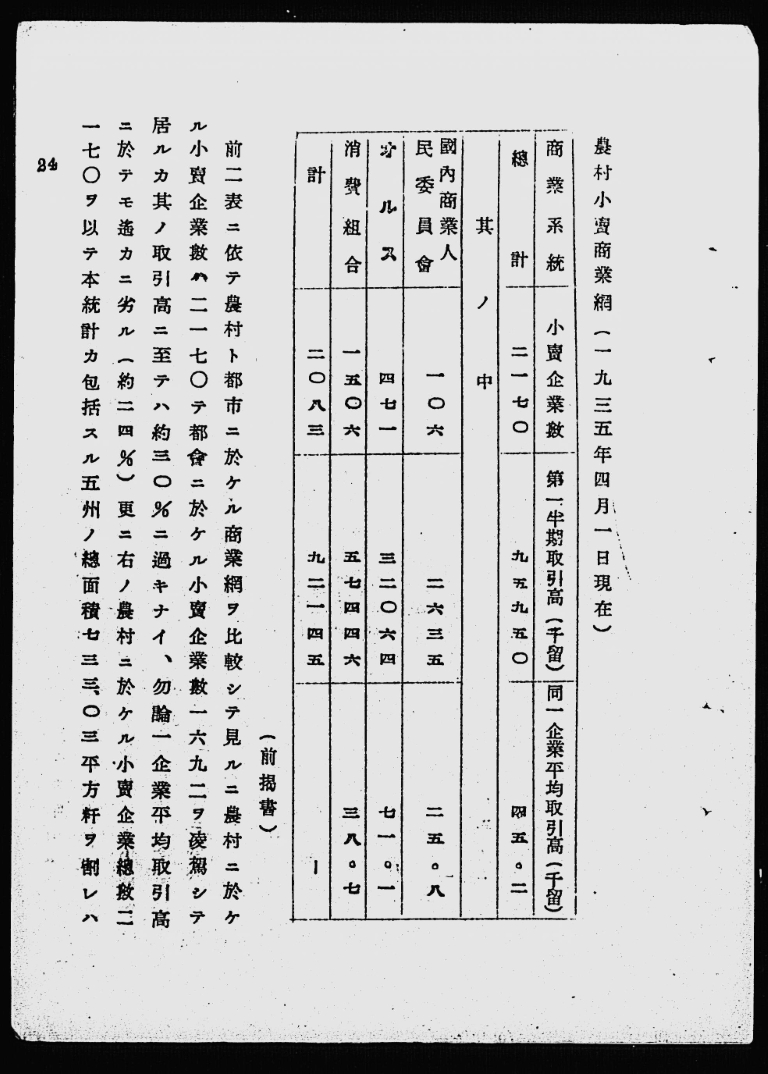 農村小賣商業網(一九三五年四月一日現在)
商業系統 小賣企業數 第一半期取引高(千留) 同一企業平均取引高(千留)
總計 二一七〇 九五九五〇 四五。二
其ノ中
國內商業人民委員會 一〇六 二六三五 二五。八
オルス 四七一 三二〇六四 七一。一
消費組合 一五〇六 五七四四六 三八。七
計 二〇八三 九二一四五 ー
(前揭書)
前二表ニ依テ農村ト都市ニ於ケル商業網ヲ比較シテ見ルニ農村ニ於ケ
ル小賣企業數ハ二一七〇テ都會ニ於ケル小賣企業數一六九二ヲ凌駕シテ
居ルカ其ノ取引高ニ至テハ約三〇%ニ過キナイ、勿論一企業平均取引高
ニ於テモ遙カニ劣ル(約二四%)更ニ右ノ農村ニ於ケル小賣企業總數二
一七〇ヲ以テ本統計カ包括スル五州ノ總面積七三三、〇三平方粁ヲ割レハ
24